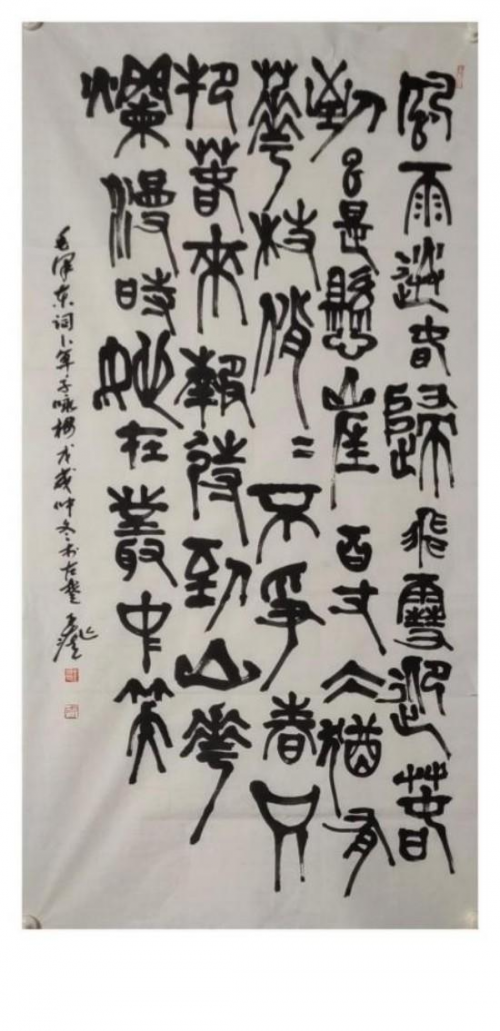 風雨送春歸飛雪迎春
到已是懸崖百丈冰猶有
華枝俏〻不爭春只
把春來報待到山華
爛漫時她在叢中笑
毛澤東词卜算子咏梅戊戌仲冬古楚